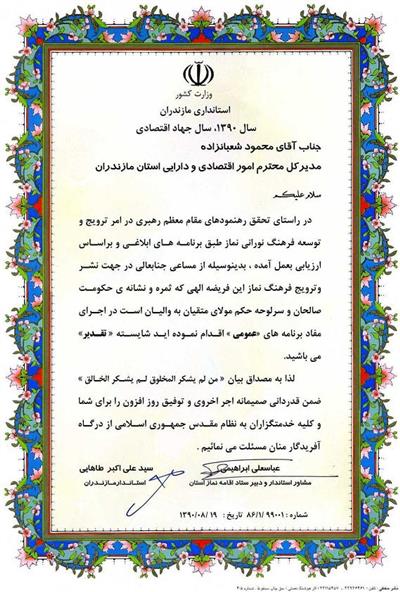 وزارت کشور
استانداری مازندران
سال ۱۳۹۰، سال جهاد اقتصادی
جناب آقای محمود شعبانزاده
مدیرکل محترم امور اقتصادی و دارایی استان مازندران
سلام علیکم
در راستای تحقق رهنمودهای مقام معظم رهبری در امر ترویج و
توسعه فرهنگ نورانی نماز طبق برنامه های ابلاغی و براساس
ارزیابی بعمل آمده ، بدینوسیله از مساعی جنابعالی در جهت نشر
وترویج فرهنگ نماز این فریضه الهی که ثمره و نشانه ی حکومت
صالحان و سرلوحه حکم مولای متقیان به والیان است در اجرای
مفاد برنامه های «عمومی» اقدام نموده اید شایسته «تقدیر»
می باشید.
لذا به مصداق بیان « من لم یشکر المخلوق لم یشکر الخالق »
ضمن قدردانی صمیمانه اجر اخروی و توفیق روز افزون را برای شما
و کلیه خدمتگزاران به نظام مقدس جمهوری اسلامی از درگاه
آفریدگار منان مسئلت می نمائیم .
عباسعلی ابراهیمی
مشاور استاندار و دبیر ستاد اقامه نماز استان
سید علی اکبر طاهایی
استاندار مازندران
شماره : ۸۶/۱/۹۹۰۰۱ تاریخ : ۱۳۹۰/۰۸/۱۹